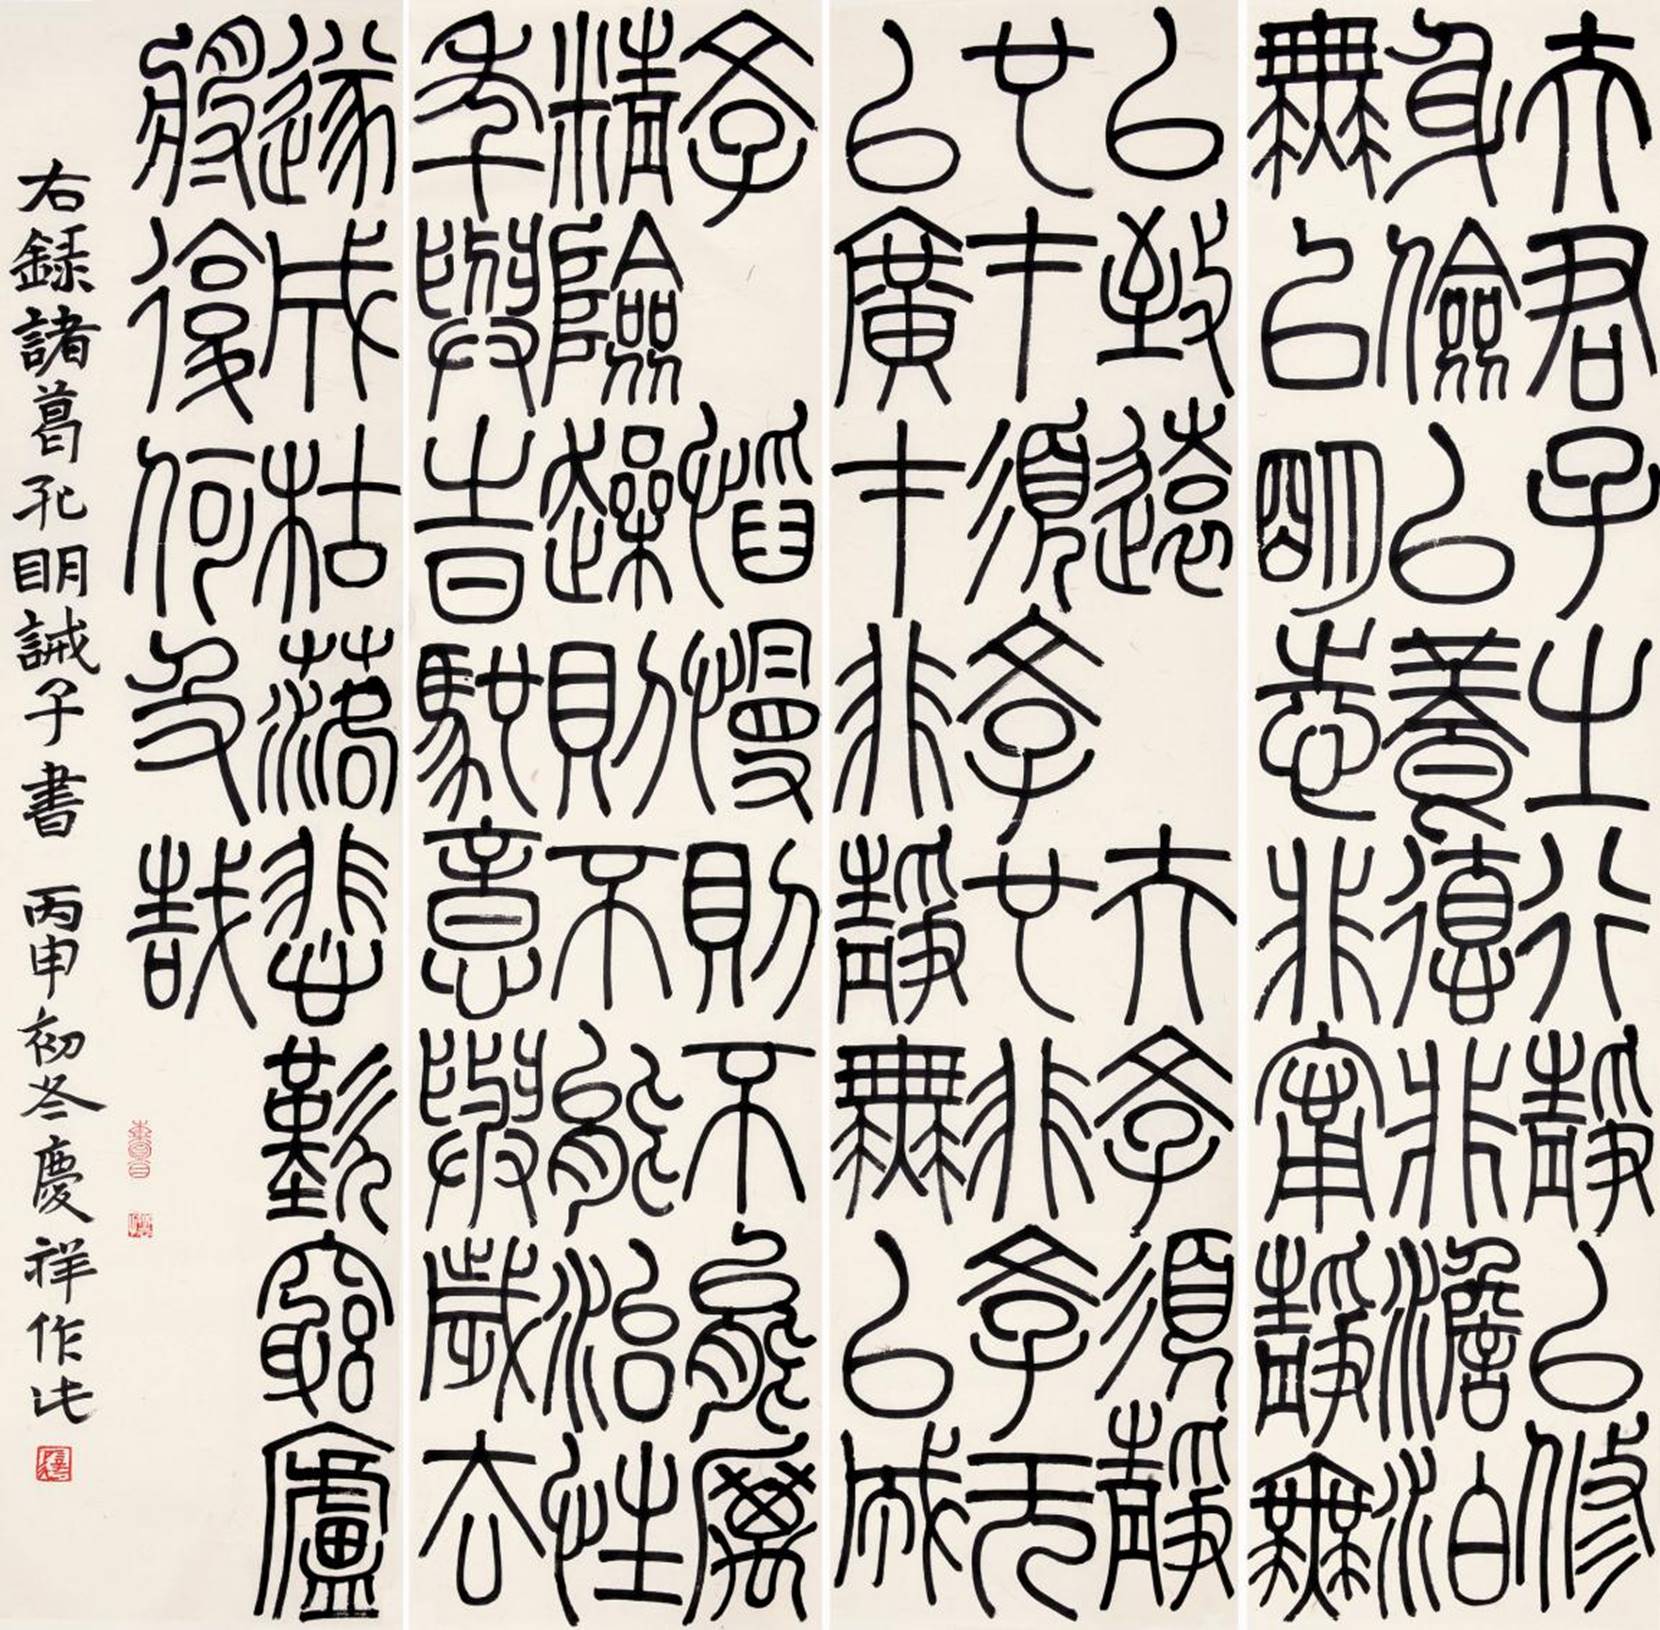 夫君子之行靜以修
身儉以養德非澹泊
無以明志非寧靜無
以致遠 夫學須靜
也才須學也非學无
以廣才非靜無以成
學 慆慢則不能厲
精險躁則不能治性
年與時馳意與歲去
遂成枯落悲歎窮廬
將復何及哉
右錄諸葛孔明誡子書 丙申初冬慶祥作此